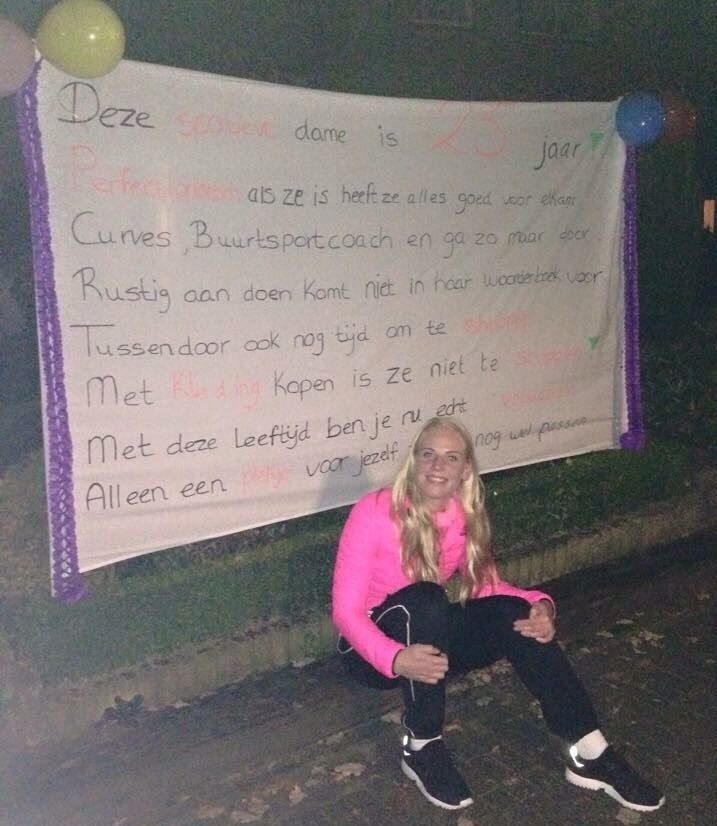 Deze sportieve dame is 23 jaar
Perfectionistisch als ze is heeft ze alles goed voor elkaar
Curves, Buurtsportcoach en ga zo maar door
Rustig aan doen komt niet in haar woordenboek voor
Tussendoor ook nog tijd om te shoppen
Met kleding kopen is ze niet te stoppen
Met deze leeftijd ben je nu echt volwassen
Alleen een plekje voor jezelf nog wel passen